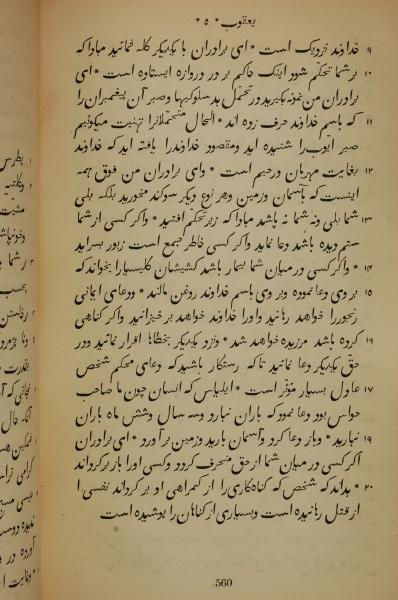 یعقوب * ۵ *
۹ خداوند نزدیک است * ای برادران با یکدیگر گله منمائید مبادا که
۱۰ بر شما تحکّم شود اینک حاکم بر در دروازه ایستاده است * ای
برادران من نمونه بگیرید در تحمّل بدسلوکیها و صبر آن پیغمبران را
۱۱ که باسم خداوند حرف زده اند * الحال متحملانرا تهنیت میگوئیم
صبر ایّوب را شنیده اید و مقصود خداوندرا یافته اید که خداوند
۱۲ بغایت مهربان و رحیم است * و ای برادران من فوق همه
اینست که بآسمان و زمین و هر نوع دیگر سوگند مخورید بلکه بلی
۱۳ شما بلی و نه شما نه باشد مبادا که زیر تحکّم افتید * و اگر کسی از شما
ستم دیده باشد دعا نماید و اگر کسی خاطر جمع است زبور بسراید
۱۴ * و اگر کسی در میان شما بیمار باشد کشیشان کلیسیا را بخواند که
۱۵ بر وی دعا نموده و بر وی باسم خداوند روغن مالند * و دعای ایمانی
رنجور را خواهد رهانید و اورا خداوند خواهد بر خیزانید و اگر گناهی
۱۶ کرده باشد آمرزیده خواهد شد * و نزد یکدیگر بخطاها اقرار نمائید و در
حقّ یکدیگر دعا نمائید تا که رستگار باشید که دعای محکم شخص
۱۷ عادل بسیار مؤثّر است * ایلیاس که انسان چون ما صاحب
حواس بود دعا نمود که باران نبارد و سه سال و شش ماه باران
۱۹ نبارید * و باز دعا کرد و آسمان بارید و زمین بر آورد * ای برادران
اگر کسی در میان شما از حق منحرف گردد و کسی اورا باز گرداند
۲۰ * بداند که شخص که گناه‌کاری را از گمراهی او بر گرداند نفسی را
از قتل رهانیده است و بسیاری از گناهان را پوشیده است
560